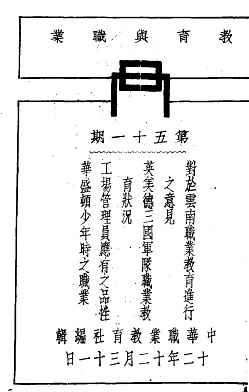 教育與職業
第五十一期
對於雲南職業教育進行
之意見
英美德三國軍隊職業教
育狀況
工場管理員應有之品性
華盛頓少年時之職業
中華職業教育社編輯
十二年十二月三十一日